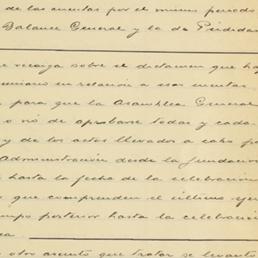 de las cuentas por el mismo período
Balance General y la de Pérdidas
recaiga sobre el dictamen que ha
en relación a esas cuentas
para que la Asamblea General
o nó de aprobarse todas y cada
y de los actos llevados a cabo p
Administración desde la fundación
hasta la fecha de la celebración
que comprenden el último eje
mpo posterior hasta la celebración
ea.
otro asunto que tratar se levantó